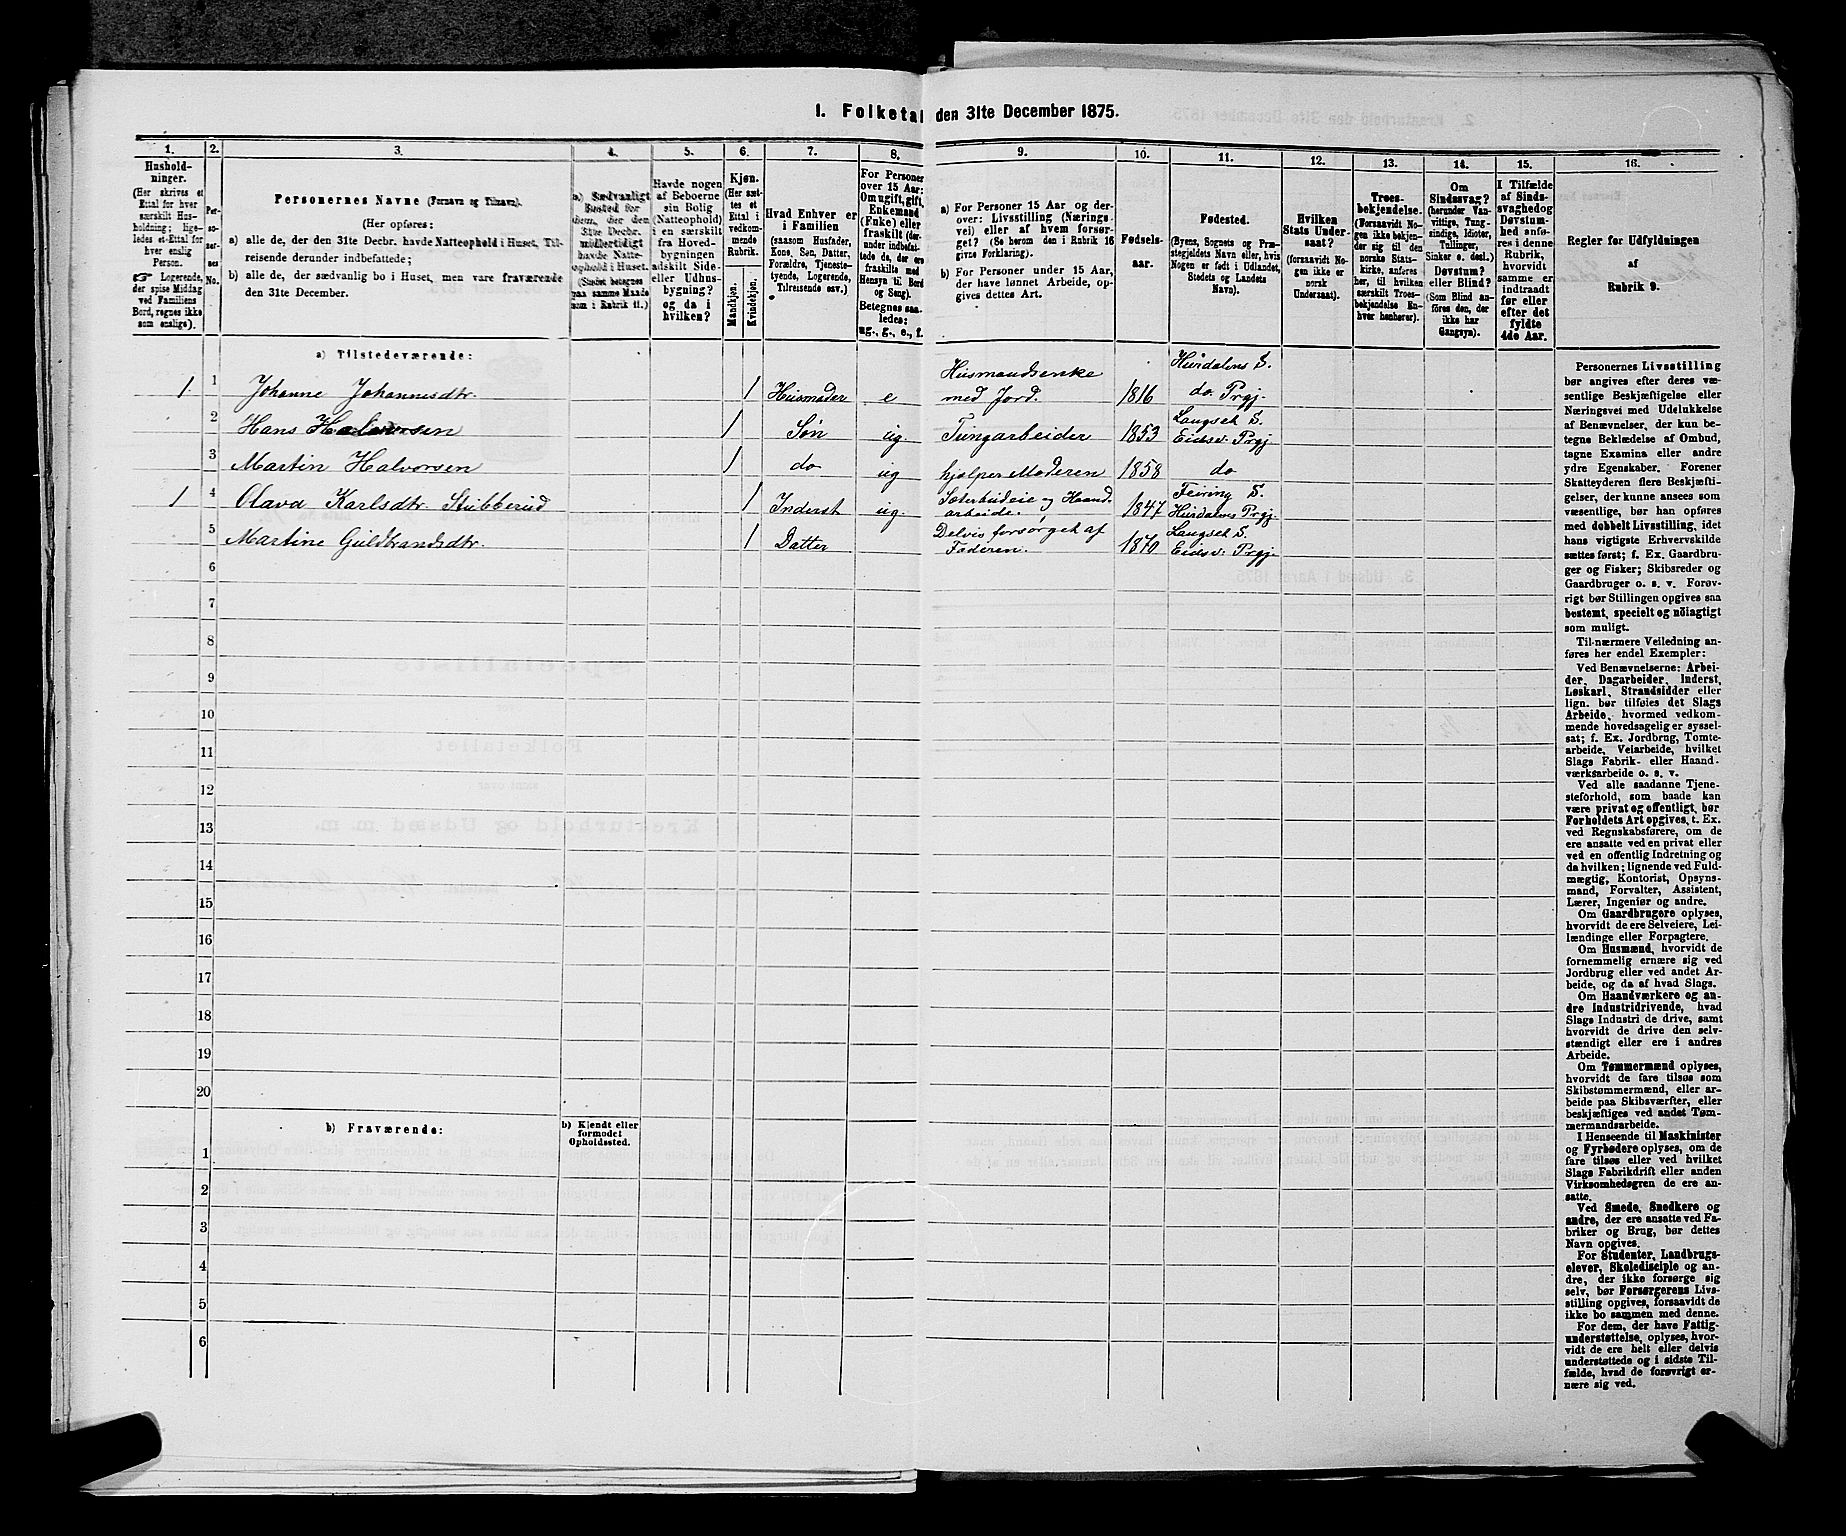 I. Folketal den 31te December 1875.
1. 2. 3. 4. 5. 6. 7. 8. 9. 10. 11. 12. 13. 14. 15. 16.
Hushold-
ninger.
(Her skrives et
Ettal for hver
særskilt Hus-
holdning; lige-
ledes et Ettal for
hver enslig
Person.
☞ Logerende,
der spise Middag
ved Familiens
Bord, regnes ikke
som enslige).
Per-
so-
ner-
nes
No.
Personernes Navne (Fornavn og Tilnavn).
(Her opføres:
a) alle de, der den 31te Decbr. havde Natteophold i Huset, Til-
reisende derunder indbefattede;
b) alle de, der sædvanlig bo i Huset, men vare fraværende
den 31te December.
a) Sædvanligt
Bosted for
dem, der den
31te Decbr.
midlertidigt
havde Natte-
ophold i Huset.
(Stedet betegnes
paa samme Maade
som i Rubrik 11.)
Havde nogen
af Beboerne
sin Bolig
(Natteophold)
i en særskilt
fra Hoved-
bygningen
adskilt Side-
eller Udhus-
bygning?
og da i
hvilken?
Kjøn.
(Her sæt-
tes et
Ettal i
vedkom-
mende
Rubrik.
Mandkjøn.
Kvindekjøn.
Hvad Enhver er
i Familien
(saasom Husfader,
Kone, Søn, Datter,
Forældre, Tjeneste-
tyende, Logerende,
Tilreisende osv.)
For Personer
over 15 Aar:
Om ugift, gift,
Enkemand
(Enke) eller
fraskilt (der-
under indbefat-
tede de, der
ere fraskilte
med Hensyn til Bord
og Seng).
Betegnes saa-
ledes:
ug., g., e., f.
a) For Personer 15 Aar og der-
over: Livsstilling (Nærings-
vei) eller af hvem forsør-
get? (Se herom den i Rubrik 16
givne Forklaring).
b) For Personer under 15 Aar,
der have lønnet Arbeide, op-
gives dettes Art.
Fødsels-
aar.
Fødested.
(Byens, Sognets og Præ-
stegjeldets Navn, eller, hvis
Nogen er født i Udlandet,
Stedets og Landets
Navn).
Hvilken
Stats Under-
saat?
(forsaavidt No-
gen ikke er
norsk
Undersaat).
Troes-
bekjendelse.
(Forsaavidt No-
gen ikke bekjen-
der sig til den
norske Stats-
kirke, anføres
her, til hvilken
særskilt Troes-
bekjendelse En-
hver henhører).
Om
Sindssvag?
(herunder Van-
vittige, Tung-
sindige, Idioter,
Tullinger,
Sinker o. desl.)
Døvstum?
eller Blind?
(Som Blind an-
føres den, der
ikke har
Gangsyn).
I Tilfælde
af Sinds-
svaghed og
Døvstum-
hed anfø-
res i denne
Rubrik,
hvorvidt
samme er
indtraadt
før eller
efter det
fyldte
4de Aar.
Regler for Udfyldningen
af
Rubrik 9.
a) Tilstedeværende:
1 1 Johanne Johannesdtr. 1 Husmoder e Husmandsenke med Jord. 1816 Hurdalens S. do. Prgj.
2 Hans Halvorsen 1 Søn ug Tungarbeider 1853 Langset S. Eidsv. Prgj.
3 Martin Halvorsen 1 do ug hjælper Moderen 1858 do
1 4 Olava Karlsdtr. Stubberud 1 Inderst ug. Sæterbudeie og Haandarbeide. 1847 Feiring S. Hurdalens Prgj.
5 Martine Guldbrandsdtr. 1 Datter Delvis forsørget af Faderen. 1870 Langset S. Eidsv. Prgj.
6
7
8
9
10
11
12
13
14
15
16
17
18
19
20
b) Fraværende:
b) Kjendt eller
formodet
Opholdssted.
1
2
3
4
5
6
Personernes Livsstilling
bør angives efter deres væ-
sentlige Beskjæftigelse eller
Næringsvei med Udelukkelse
af Benævnelser, der kun be-
tegne Beklædelse af Ombud,
tagne Examina eller andre
ydre Egenskaber. Forener
Skatteyderen flere Beskjæfti-
gelser, der kunne ansees som
væsentlige, bør han opføres
med dobbelt Livsstilling, idet
hans vigtigste Erhvervskilde
sættes først; f. Ex. Gaardbru-
ger og Fisker; Skibsreder og
Gaardbruger o. s. v. Forøv-
rigt bør Stillingen opgives saa
bestemt, specielt og nöiagtigt
som muligt.
Til nærmere Veiledning an-
føres her endel Exempler:
Ved Benævnelserne: Arbei-
der, Dagarbeider, Inderst,
Løskarl, Strandsidder eller
lign. bør tilføies det Slags
Arbeide, hvormed vedkom-
mende hovedsagelig er syssel-
sat; f. Ex. Jordbrug, Tomte-
arbeide, Veiarbeide, hvilket
Slags Fabrik- eller Haand-
værksarbeide o. s. v.
Ved alle saadanne Tjene-
steforhold, som baade kan
være privat og offentligt, bør
Forholdets Art opgives, t. Ex.
ved Regnskabsførere, om de
ere ansatte ved en privat eller
ved en offentlig Indretning og
da hvilken; lignende ved Fuld-
mægtig, Kontorist, Opsyns-
mand, Forvalter, Assistent,
Lærer, Ingeniør og andre.
Om Gaardbrugere oplyses,
hvorvidt de ere Selveiere, Lei-
lændinge eller Forpagtere.
Om Husmænd, hvorvidt de
fornemmelig ernære sig ved
Jordbrug eller ved andet Ar-
beide, og da af hvad Slags.
Om Haandværkere og an-
dre Industridrivende, hvad
Slags Industri de drive, samt
hvorvidt de drive den selv-
stændigt eller ere i andres
Arbeide.
Om Tømmermænd oplyses,
hvorvidt de fare tilsøs som
Skibstømmermænd, eller ar-
beide paa Skibsværfter, eller
beskjæftiges ved andet Tøm-
mermandsarbeide.
I Henseende til Maskinister
og Fyrbødere oplyses, om de
fare tilsøs eller ved hvilket
Slags Fabrikdrift eller anden
Virksomhedsgren de ere an-
satte.
Ved Smede, Snedkere og
andre, der ere ansatte ved Fa-
briker og Brug, bør dettes
Navn opgives.
For Studenter, Landbrugs-
elever, Skoledisciple og an-
dre, der ikke forsørge sig
selv, bør Forsørgerens Livs-
stilling opgives, forsaavidt de
ikke bo sammen med denne.
For dem, der have Fattig-
understøttelse, oplyses, hvor-
vidt de ere helt eller delvis
understøttede og i sidste Til-
fælde, hvad de forøvrigt er-
nære sig ved.